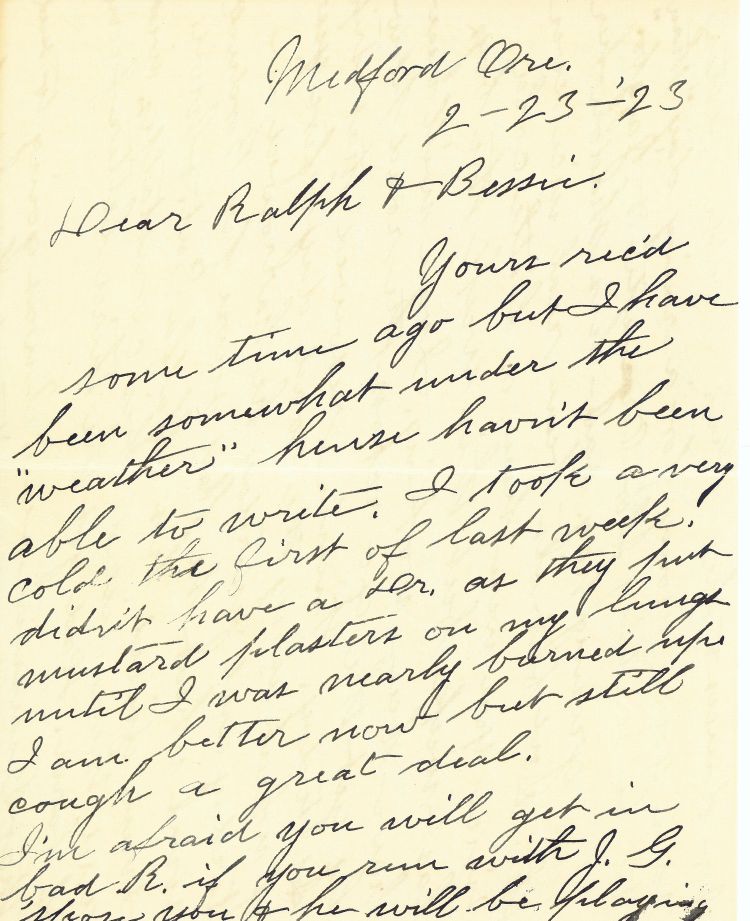 Medford Ore.
2-23-'23
Dear Ralph & Bessie.
Yours rec'd
some time ago but I have
been somewhat under the
"weather" hense havn't been
able to write. I took a very
cold the first of last week.
didn't have a Dr. as they put
mustard plasters on my lungs
until I was nearly burned up.
I am better now but still
cough a great deal.
I'm afraid you will get in
bad R. if you run with J. G.
you & he will be playing